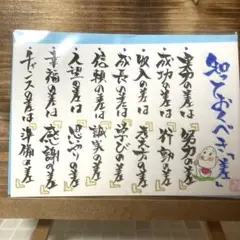 知っておくべき"差"
・実力の差は『努力の差』
・成功の差は『行動の差』
・収入の差は『考え方の差』
・成長の差は『学びの差』
・信頼の差は『誠実の差』
・人望の差は『思いやりの差』
・幸福の差は『感謝の差』
・チャンスの差は『準備の差』